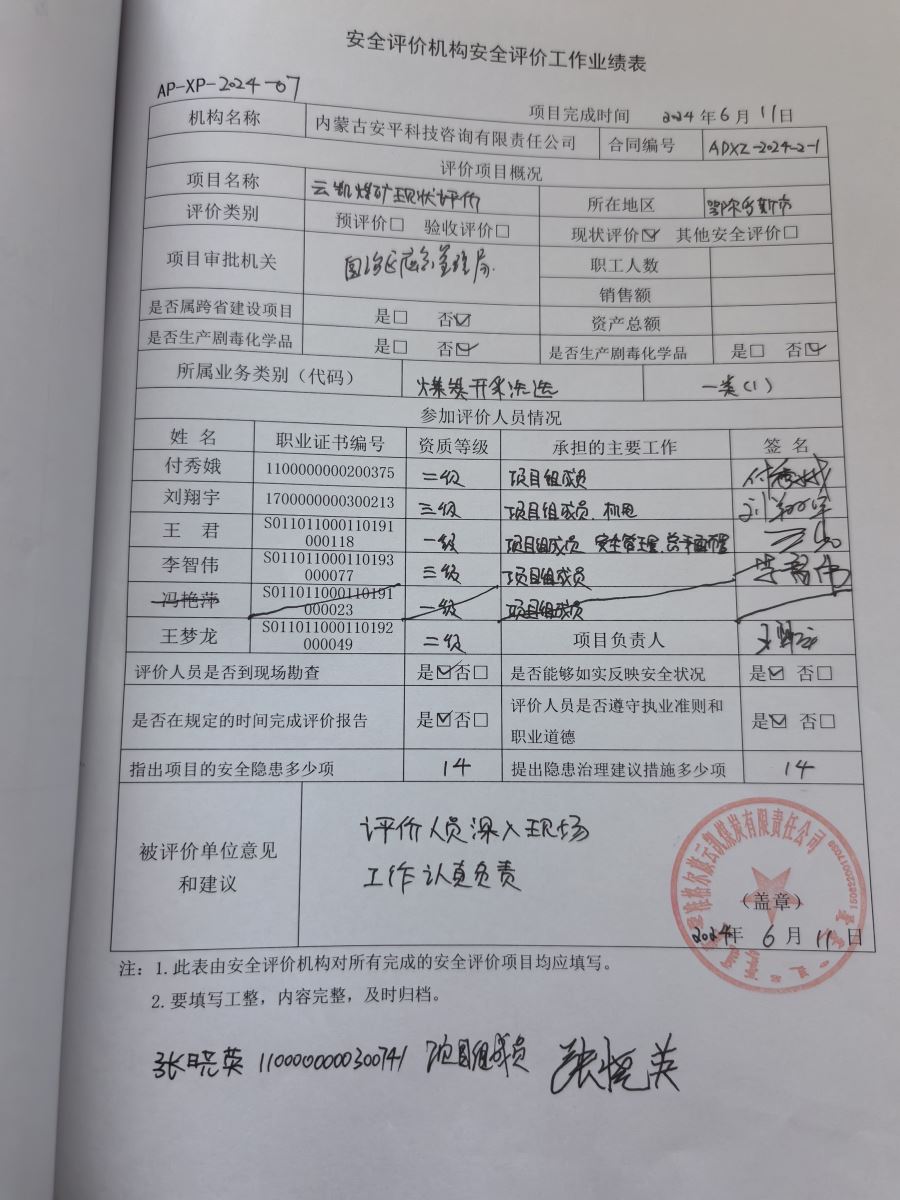 安全评价机构安全评价工作业绩表
AP-XP-2024-07
项目完成时间 2024年6月11日
机构名称 内蒙古安平科技咨询有限责任公司 合同编号 APXZ-2024-2-1
评价项目概况
项目名称 云凯煤矿现状评价 所在地区 鄂尔多斯市
评价类别 预评价□ 验收评价□ 现状评价☑ 其他安全评价□
项目审批机关 自治区应急管理局 职工人数
销售额
是否属跨省建设项目 是□ 否☑ 资产总额
是否生产剧毒化学品 是□ 否☑ 是否生产剧毒化学品 是□ 否☑
所属业务类别（代码） 煤炭开采洗选 一类(1)
参加评价人员情况
姓 名 职业证书编号 资质等级 承担的主要工作 签 名
付秀娥 1100000000200375 二级 项目组成员 付秀娥
刘翔宇 1700000000300213 三级 项目组成员、机电 刘翔宇
王 君 S011011000110191 一级 项目组成员 安全管理、总平面布置 王君
000118
李智伟 S011011000110193 三级 项目组成员 李智伟
000077
冯艳萍 S011011000110191 一级 项目组成员
000023
王梦龙 S011011000110192 二级 项目负责人 王梦龙
000049
评价人员是否到现场勘查 是☑否□ 是否能够如实反映安全状况 是☑ 否□
是否在规定的时间完成评价报告 是☑否□ 评价人员是否遵守执业准则和 是☑ 否□
职业道德
指出项目的安全隐患多少项 14 提出隐患治理建议措施多少项 14
评价人员深入现场
被评价单位意见 工作认真负责
和建议
准格尔旗云凯煤炭有限责任公司
（盖章）
2024年 6月 11日
注：1.此表由安全评价机构对所有完成的安全评价项目均应填写。
2.要填写工整，内容完整，及时归档。
张晓英 1100000000300741 项目组成员 张晓英